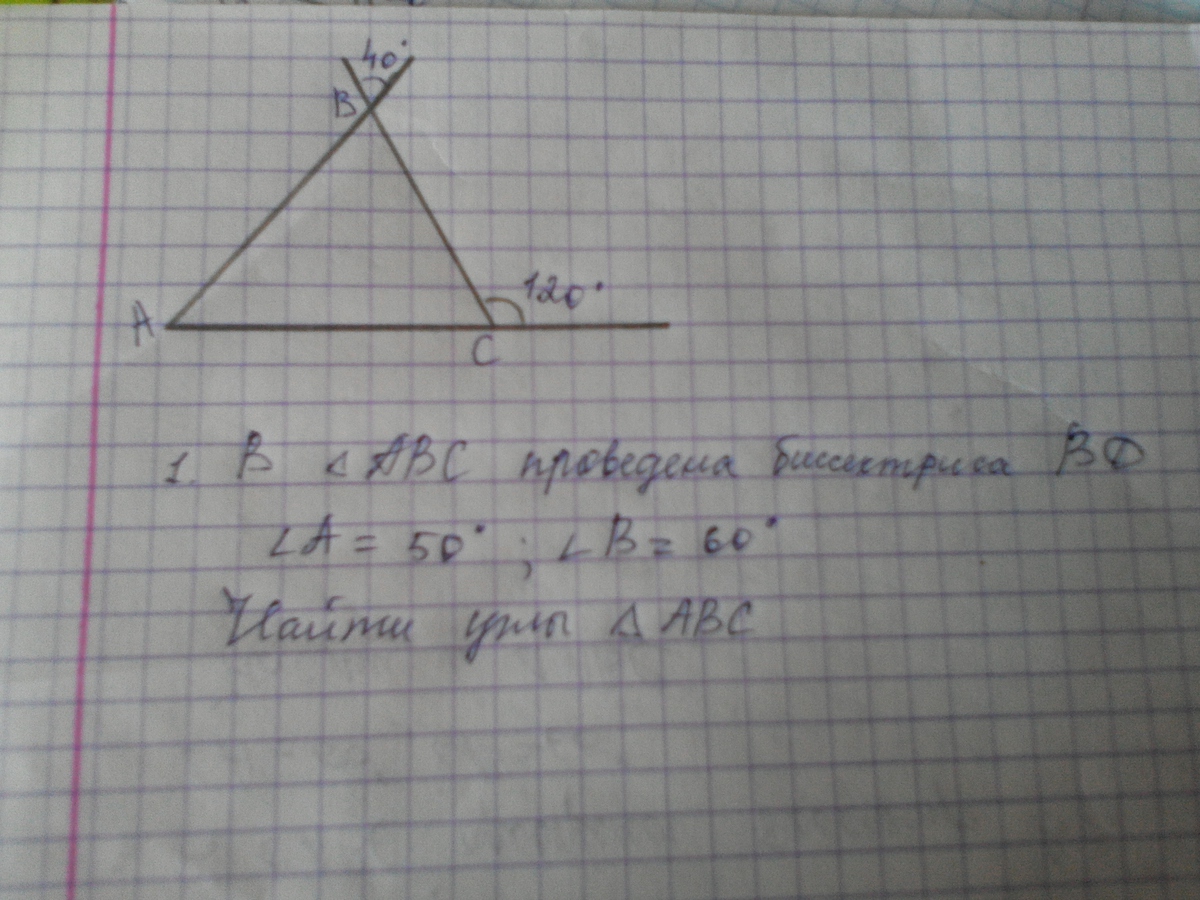 40°
B
120°
A
C
1. В ∠ ABC проведена биссектриса BD
∠A = 50° ; ∠B = 60°
Найти углы △ ABC